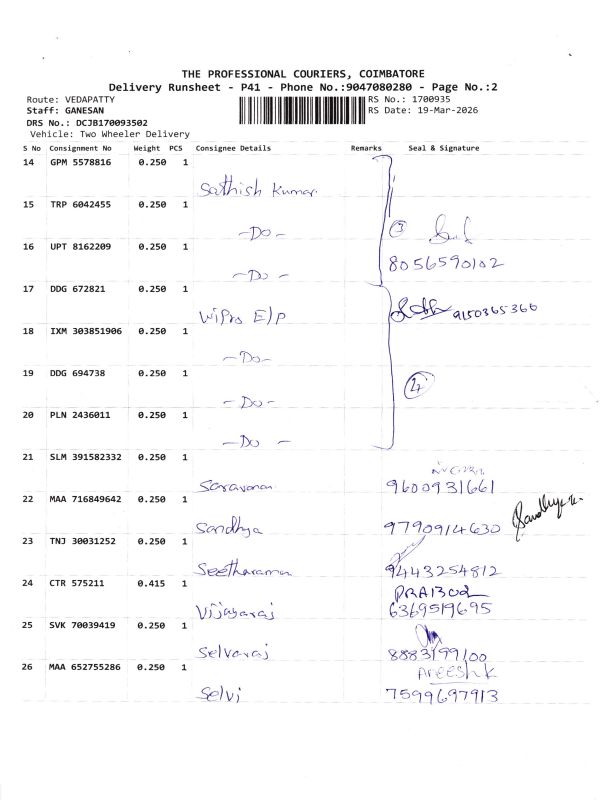 THE PROFESSIONAL COURIERS, COIMBATORE
Delivery Runsheet - P41 - Phone No.:9047080280 - Page No.:2
Route: VEDAPATTY RS No.: 1700935
Staff: GANESAN RS Date: 19-Mar-2026
DRS No.: DCJB170093502
Vehicle: Two Wheeler Delivery
S No Consignment No Weight PCS Consignee Details Remarks Seal & Signature
14 GPM 5578816 0.250 1
Sathish Kumar
15 TRP 6042455 0.250 1
-Do- 3
16 UPT 8162209 0.250 1
-Do- 8056590102
17 DDG 672821 0.250 1
Wipro E/P 9150365366
18 IXM 303851906 0.250 1
-Do-
19 DDG 694738 0.250 1
-Do-
20 PLN 2436011 0.250 1
-Do-
21 SLM 391582332 0.250 1
Saravanan 9600931661
22 MAA 716849642 0.250 1
Sandhya 9790914630 Sandhya
23 TNJ 30031252 0.250 1
Seetharaman 9443254812
24 CTR 575211 0.415 1
Vijayaraj 6369519695
25 SVK 70039419 0.250 1
Selvaraj 8883199100
26 MAA 652755286 0.250 1 Areesh K
Selvi 7599697913